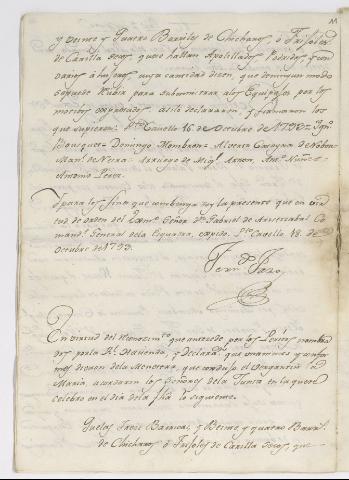 y Veinte y Quatro Barriles de Chicharos ô Frisoles
de Carilla secos, que se hallan Apolillados Podridos y con
varios â huseros cuya cantidad dicen, que de ningun modo
se puede Rúbir para subministrar alos Equipages por los
motivos expresados. Asi lo declararon, y firmaron los
que supieron. Pto Cavello 16 de Octubre de 1793= Ign.º
Bousquet= Domingo Mombrun= Alvaro Cavayna de Noboa
Man.l de Neira= Arriego de Mig.l Arnon, Ant.º Nuñez=
Antonio Perez.
Y para los fines que combenga doy la presente que en vir
tud de orden del Exmo Señor Dn Gabriel de Aristizabal Co
mand.te General dela Esquadra, expido. Pto Cavello 18 de
Octubre de 1793.
Fern.do
En virtud del Reconocim.to que antecede por los Peritos nombra
dos por la Rl Hacienda, y Declaraz.n que unanimes y confor
mes dieron dela Menestra, que condujo el Vergantin
Maria, acordaron los Señores dela Junta en la que se
celebro en el dia dela fha lo siguiente.
Que los Trece Barricas, y Beinte y quatro Barril.s
de Chicharos ô Frisoles de Carilla secos, que